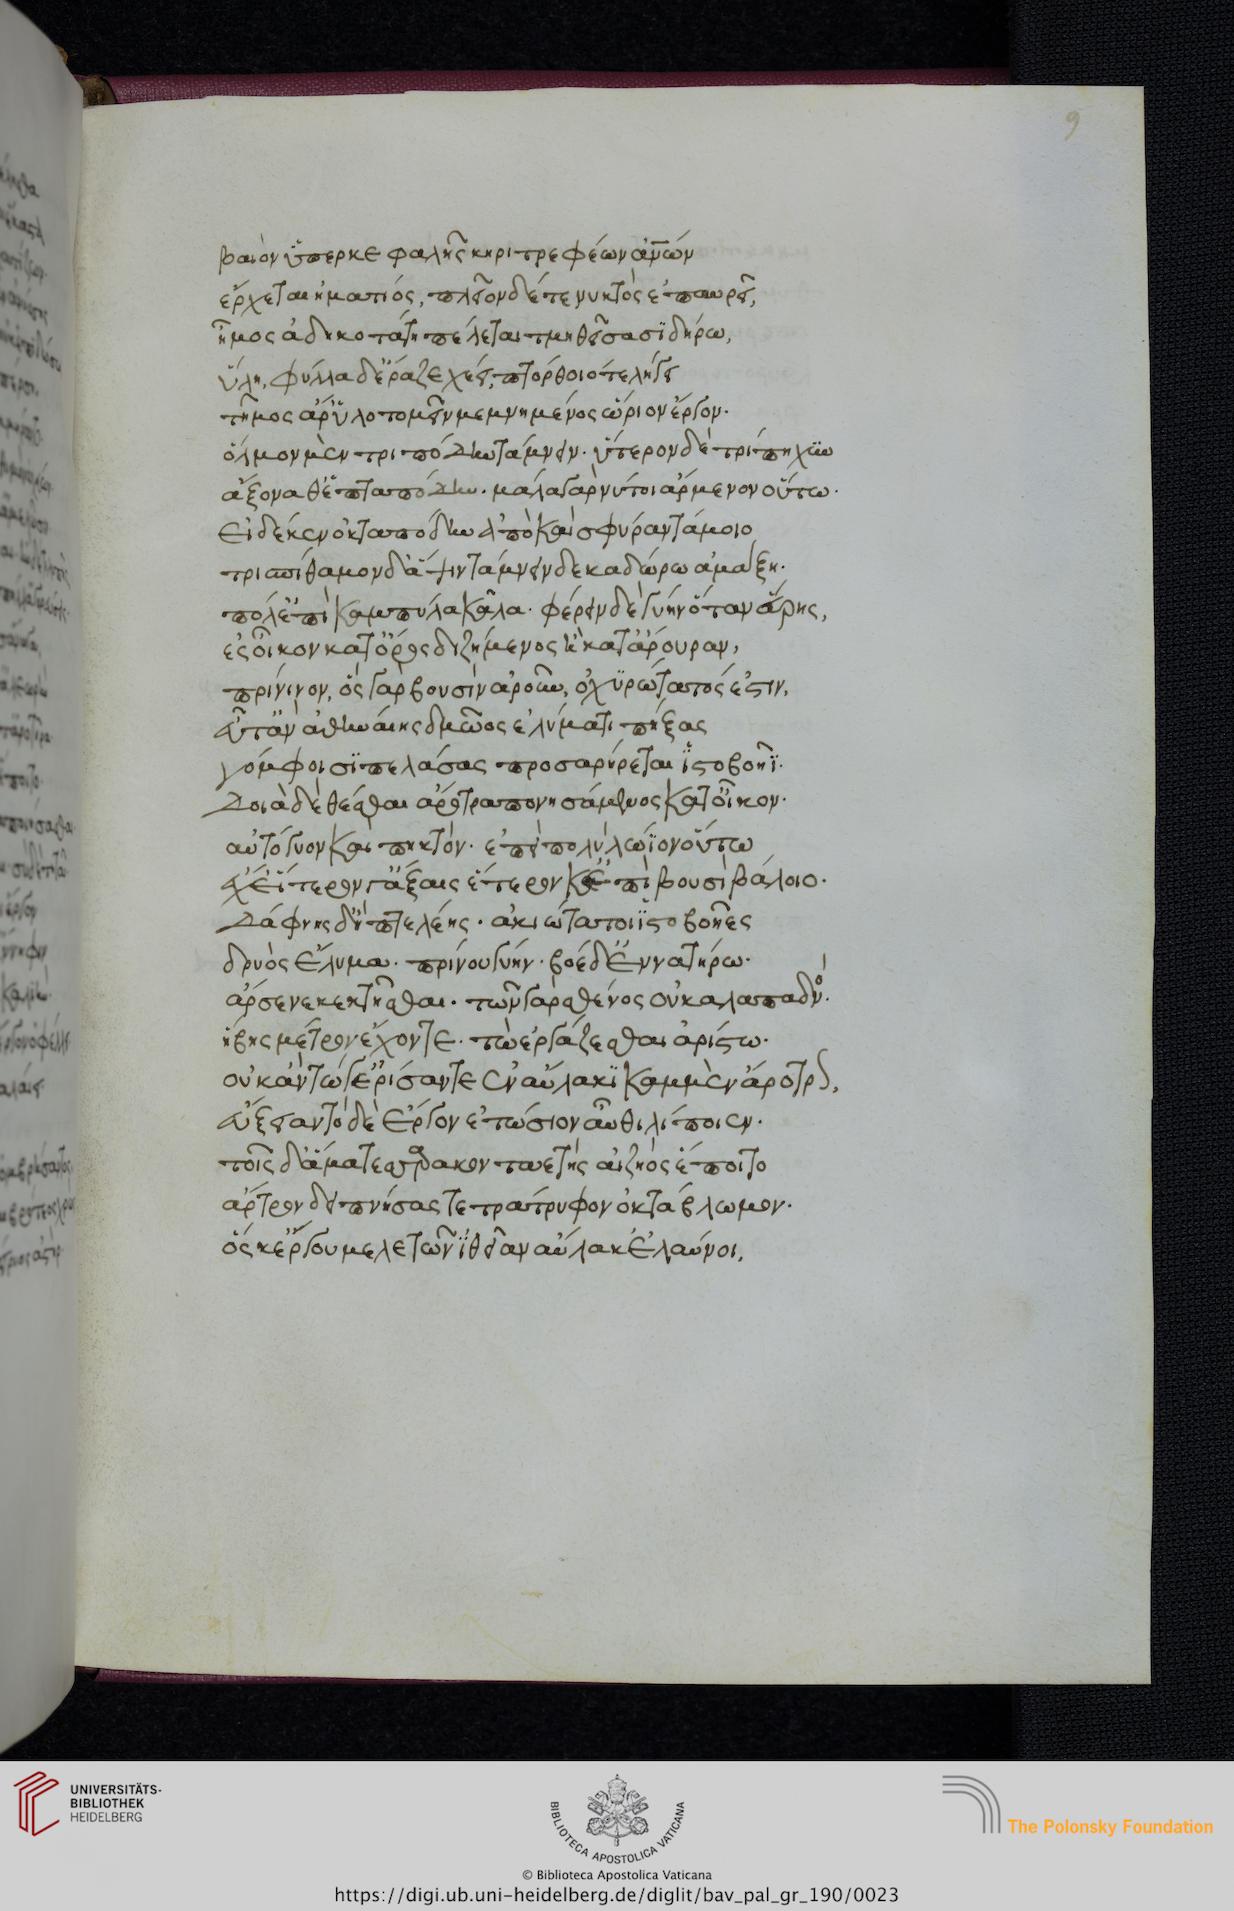 9
βαιὸν ὕπερ κεφαλῆς κηριτρεφέων ἀν̅ων
ἔρχεται ημάτιός, πλεῖον δέ τε νυκτὸς ἐπαυρεῖ,
ἦμος ἀδηκοτάτη πέλεται τμηθεῖσα σϊδήρω,
ὕλη, φύλλα δ' ἔραζε χέει, πτόρθοιό τε λήγει
τῆμος ἄρ' ὑλοτομεῖν μεμνημένος ὥριον ἔργον.
ὅλμον μὲν τριπόδην τάμνειν. ὕπερον δὲ τρίπηχϋν
ἄξονα θ' ἑπταπόδην. μάλα γὰρ νύ τοι ἄρμενον οὕτω.
εἰ δέ κεν ὀκταπόδην ἀπὸ καὶ σφύραν τάμοιο
τρισπίθαμον δ' ἄψιν τάμνειν δεκαδώρω ἁμάξη.
πόλ' ἐπὶ καμπύλα κᾶλα. φέρειν δὲ γύην ὅταν εὕρης,
ἐς οἶκον κατ' ὄρος διζήμενος ἢ κατ' ἄρουραν,
πρίνινον, ὃς γὰρ βουσὶν ἀροῦν, ὀχϋρώτατός ἐστιν,
εὖτ' ἂν ἀθηναίης δμῶος ἐλύματι πήξας
γόμφοισϊ πελάσας προσαρήρεται ἱ̈στοβοῆϊ.
Δοιὰ δὲ θέσθαι ἄροτρα πονησάμενος κατ' οἶκον.
αὐτόγυον καὶ πηκτόν. ἐπεὶ πολὺ λώϊον οὕτω
εἴ χ' ἕτερον γ' ἄξαις ἕτερον κ' ἐπὶ βουσὶ βάλοιο.
Δάφνης δ' ἢ πτελέης. ἀκιώτατοι ἱ̈στοβοῆες
δρυὸς ἔλυμα. πρίνου γύην. βόε δ' ἐνναετήρω.
ἄρσενε κεκτῆσθαι. τῶν γὰρ σθένος οὐκ ἀλαπαδνόν.
ἥβης μέτρον ἔχοντε. τὼ ἐργάζεσθαι ἀρίστω.
οὐκ ἂν τώ γ' ἐρίσαντε ἐν αὔλακϊ καμμὲν ἄροτρον,
ἄξειαν τὸ δὲ ἔργον ἐτώσιον αὖθι λίποιεν.
τοῖς δ' ἅμα τεσσαρακονταετὴς αἰζηὸς ἕποιτο
ἄρτρον δειπνήσας τετράτρυφον ὀκτάβλωμον.
ὅς κ' ἔργου μελετῶν ἰ̈θεῖαν αὔλακ' ἐλαύνοι,
UNIVERSITÄTS-
BIBLIOTHEK
HEIDELBERG
BIBLIOTECA APOSTOLICA VATICANA
The Polonsky Foundation
© Biblioteca Apostolica Vaticana
https://digi.ub.uni-heidelberg.de/diglit/bav_pal_gr_190/0023